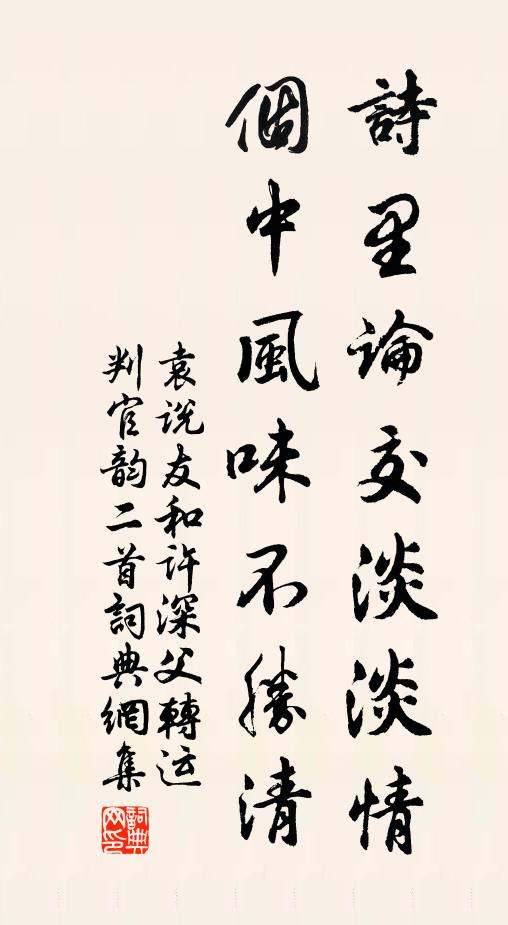 詩里論交淡淡情
個中風味不勝清
袁说友和许深父轉运
判官韵二首詞典網集
詞典网印